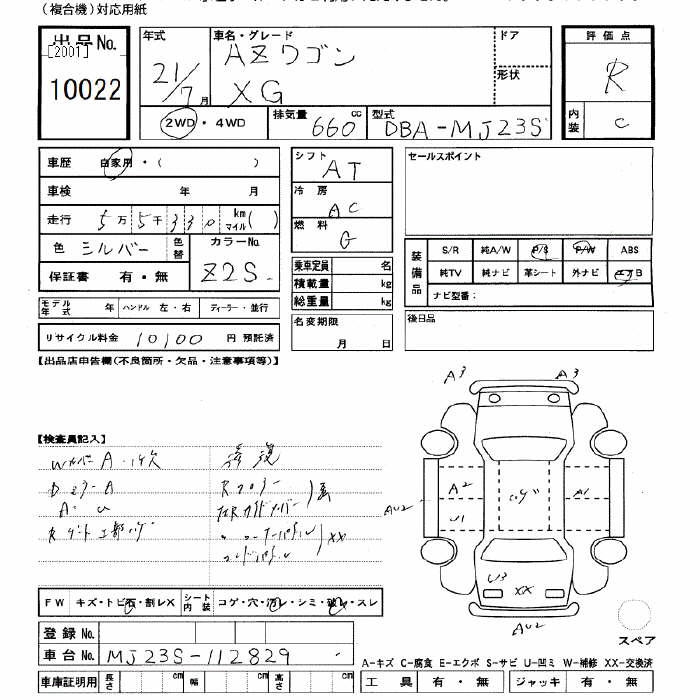 (複合機)対応用紙
出品No. [2001] 10022
年式 21/7 月
車名・グレード AZワゴン XG
ドア
形状
2WD・4WD
排気量 660 cc
型式 DBA-MJ23S
評価点 R
内装 C
車歴 自家用・( )
車検 年 月
走行 5万5千330 km マイル( )
色 シルバー 色替 カラーNo. Z2S
保証書 有・無
モデル年式 年 ハンドル 左・右 ディーラー・並行
リサイクル料金 10100 円 預託済
シフト AT
冷房 AC
燃料 G
乗車定員 名
積載量 kg
総重量 kg
名変期限 月 日
セールスポイント
装備品 S/R 純A/W P/S P/W ABS
純TV 純ナビ 革シート 外ナビ エアB
ナビ型番:
後日品
【出品店申告欄(不良箇所・欠品・注意事項等)】
【検査員記入】
Wカバー A・1ケ欠
Dミラー A
A・U
修復
Rフロアー
XX
A3 A3
A2 A1
AU2 U1
U3 XX
AU2
スペア
FW キズ・トビ石・割レX シート内装 コゲ・穴・汚レ・シミ・破レ・スレ
登録No.
車台No. MJ23S-112829
車庫証明用 長さ cm 幅 cm 高さ cm
A-キズ C-腐食 E-エクボ S-サビ U-凹ミ W-補修 XX-交換済
工具 有・無 ジャッキ 有・無